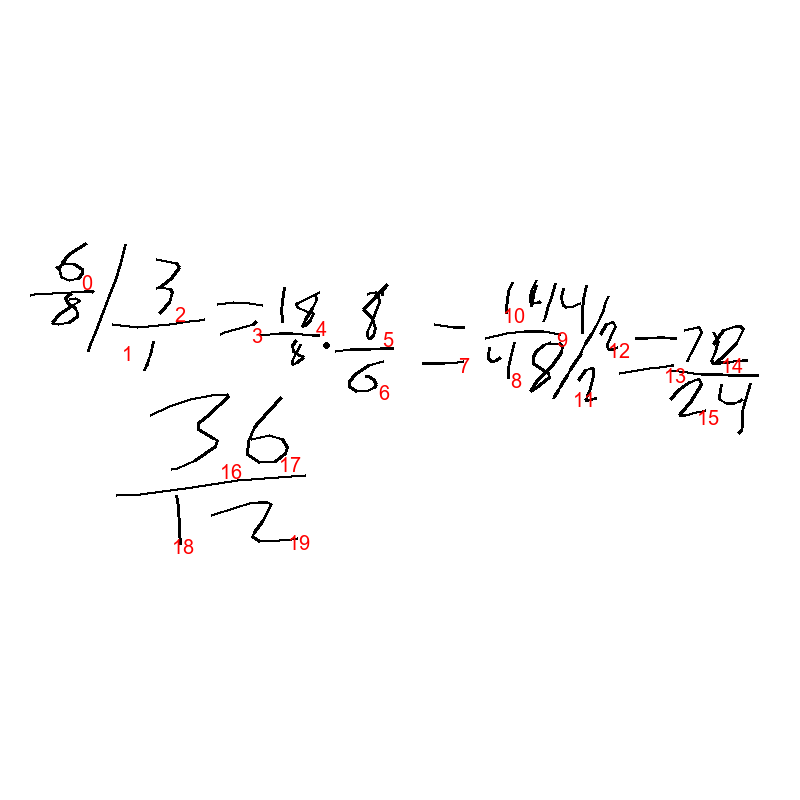 6/8 / 3/1 = 18/8 · 8/6 = 144/2 / 48/2 = 72/24
36/12
0 1 2 3 4 5 6 7 8 9 10 11 12 13 14 15 16 17 18 19